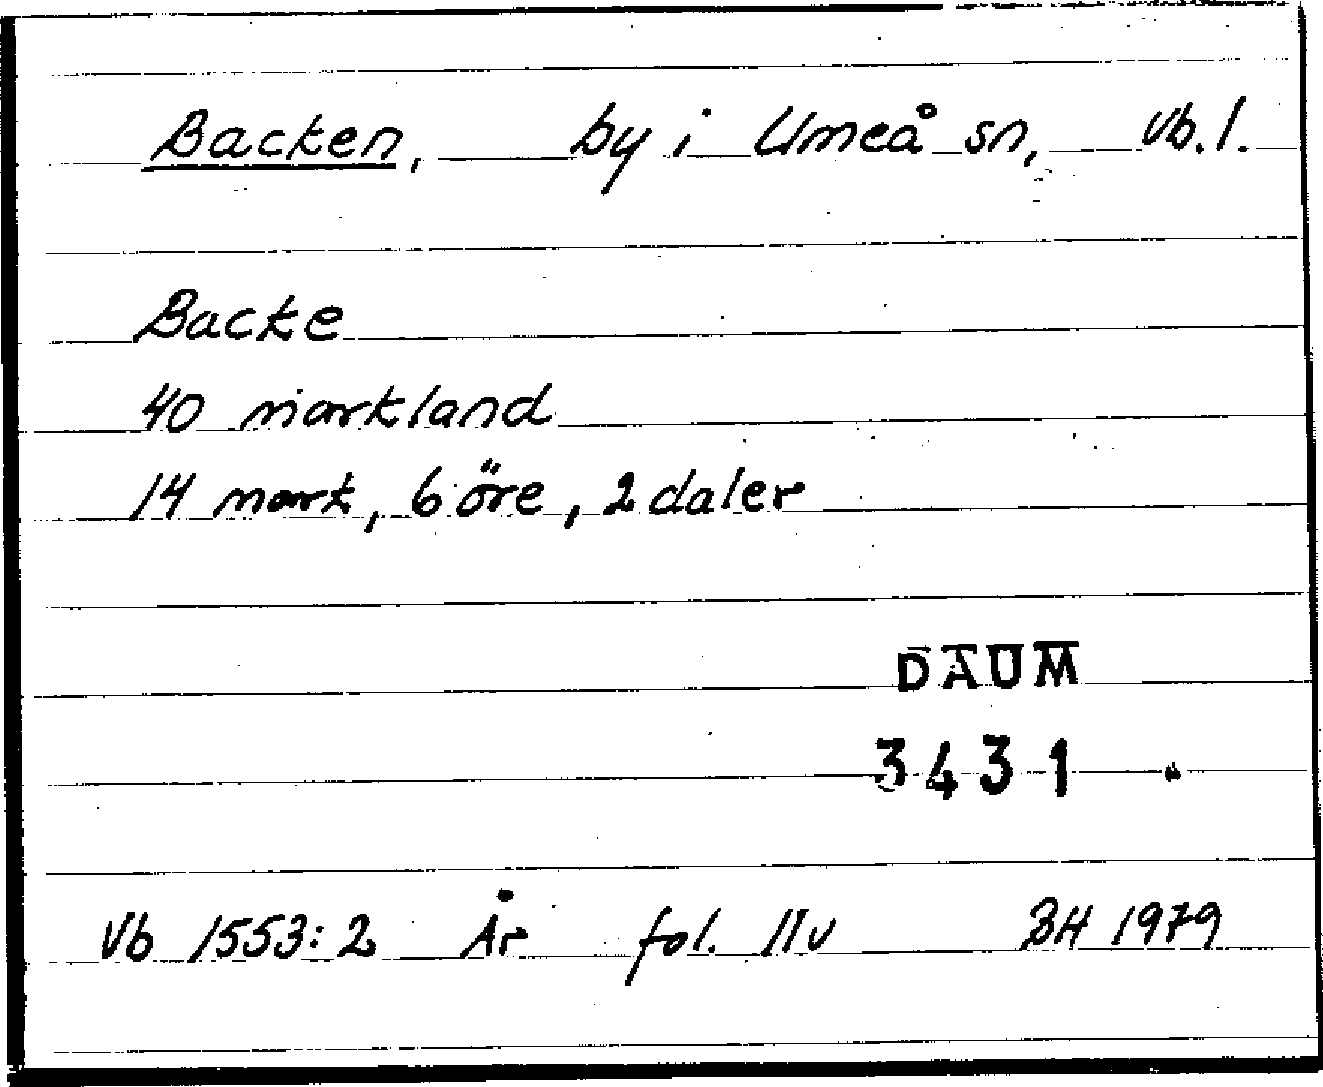 Backen, by i Umeå sn, Vb. l.
Backe
40 markland
14 mark, 6 öre, 2 daler
DAUM
3431
Vb 1553:2 År fol. 11v BH 1979